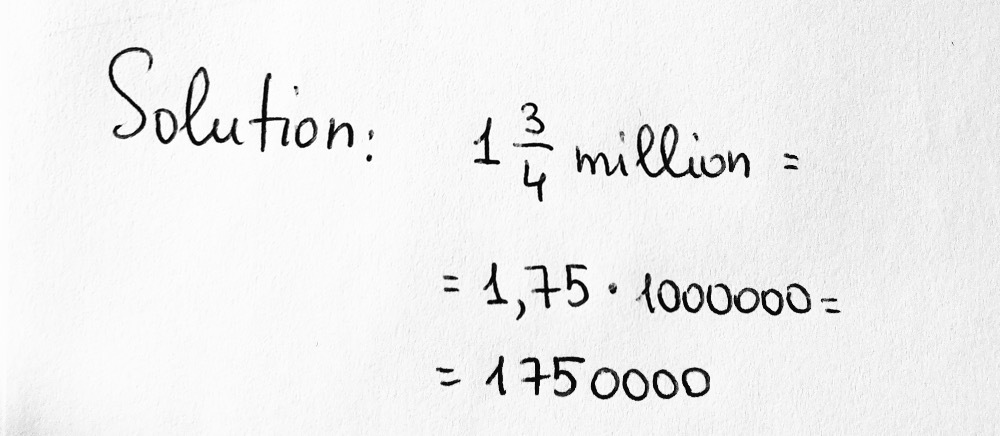 Solution: 1 3/4 million =
= 1,75 · 1000000 =
= 1750000